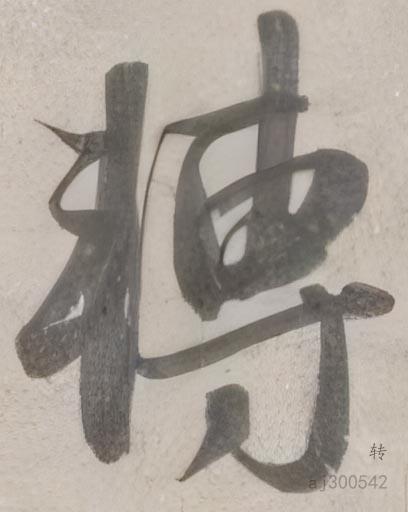 轉
转
aj300542